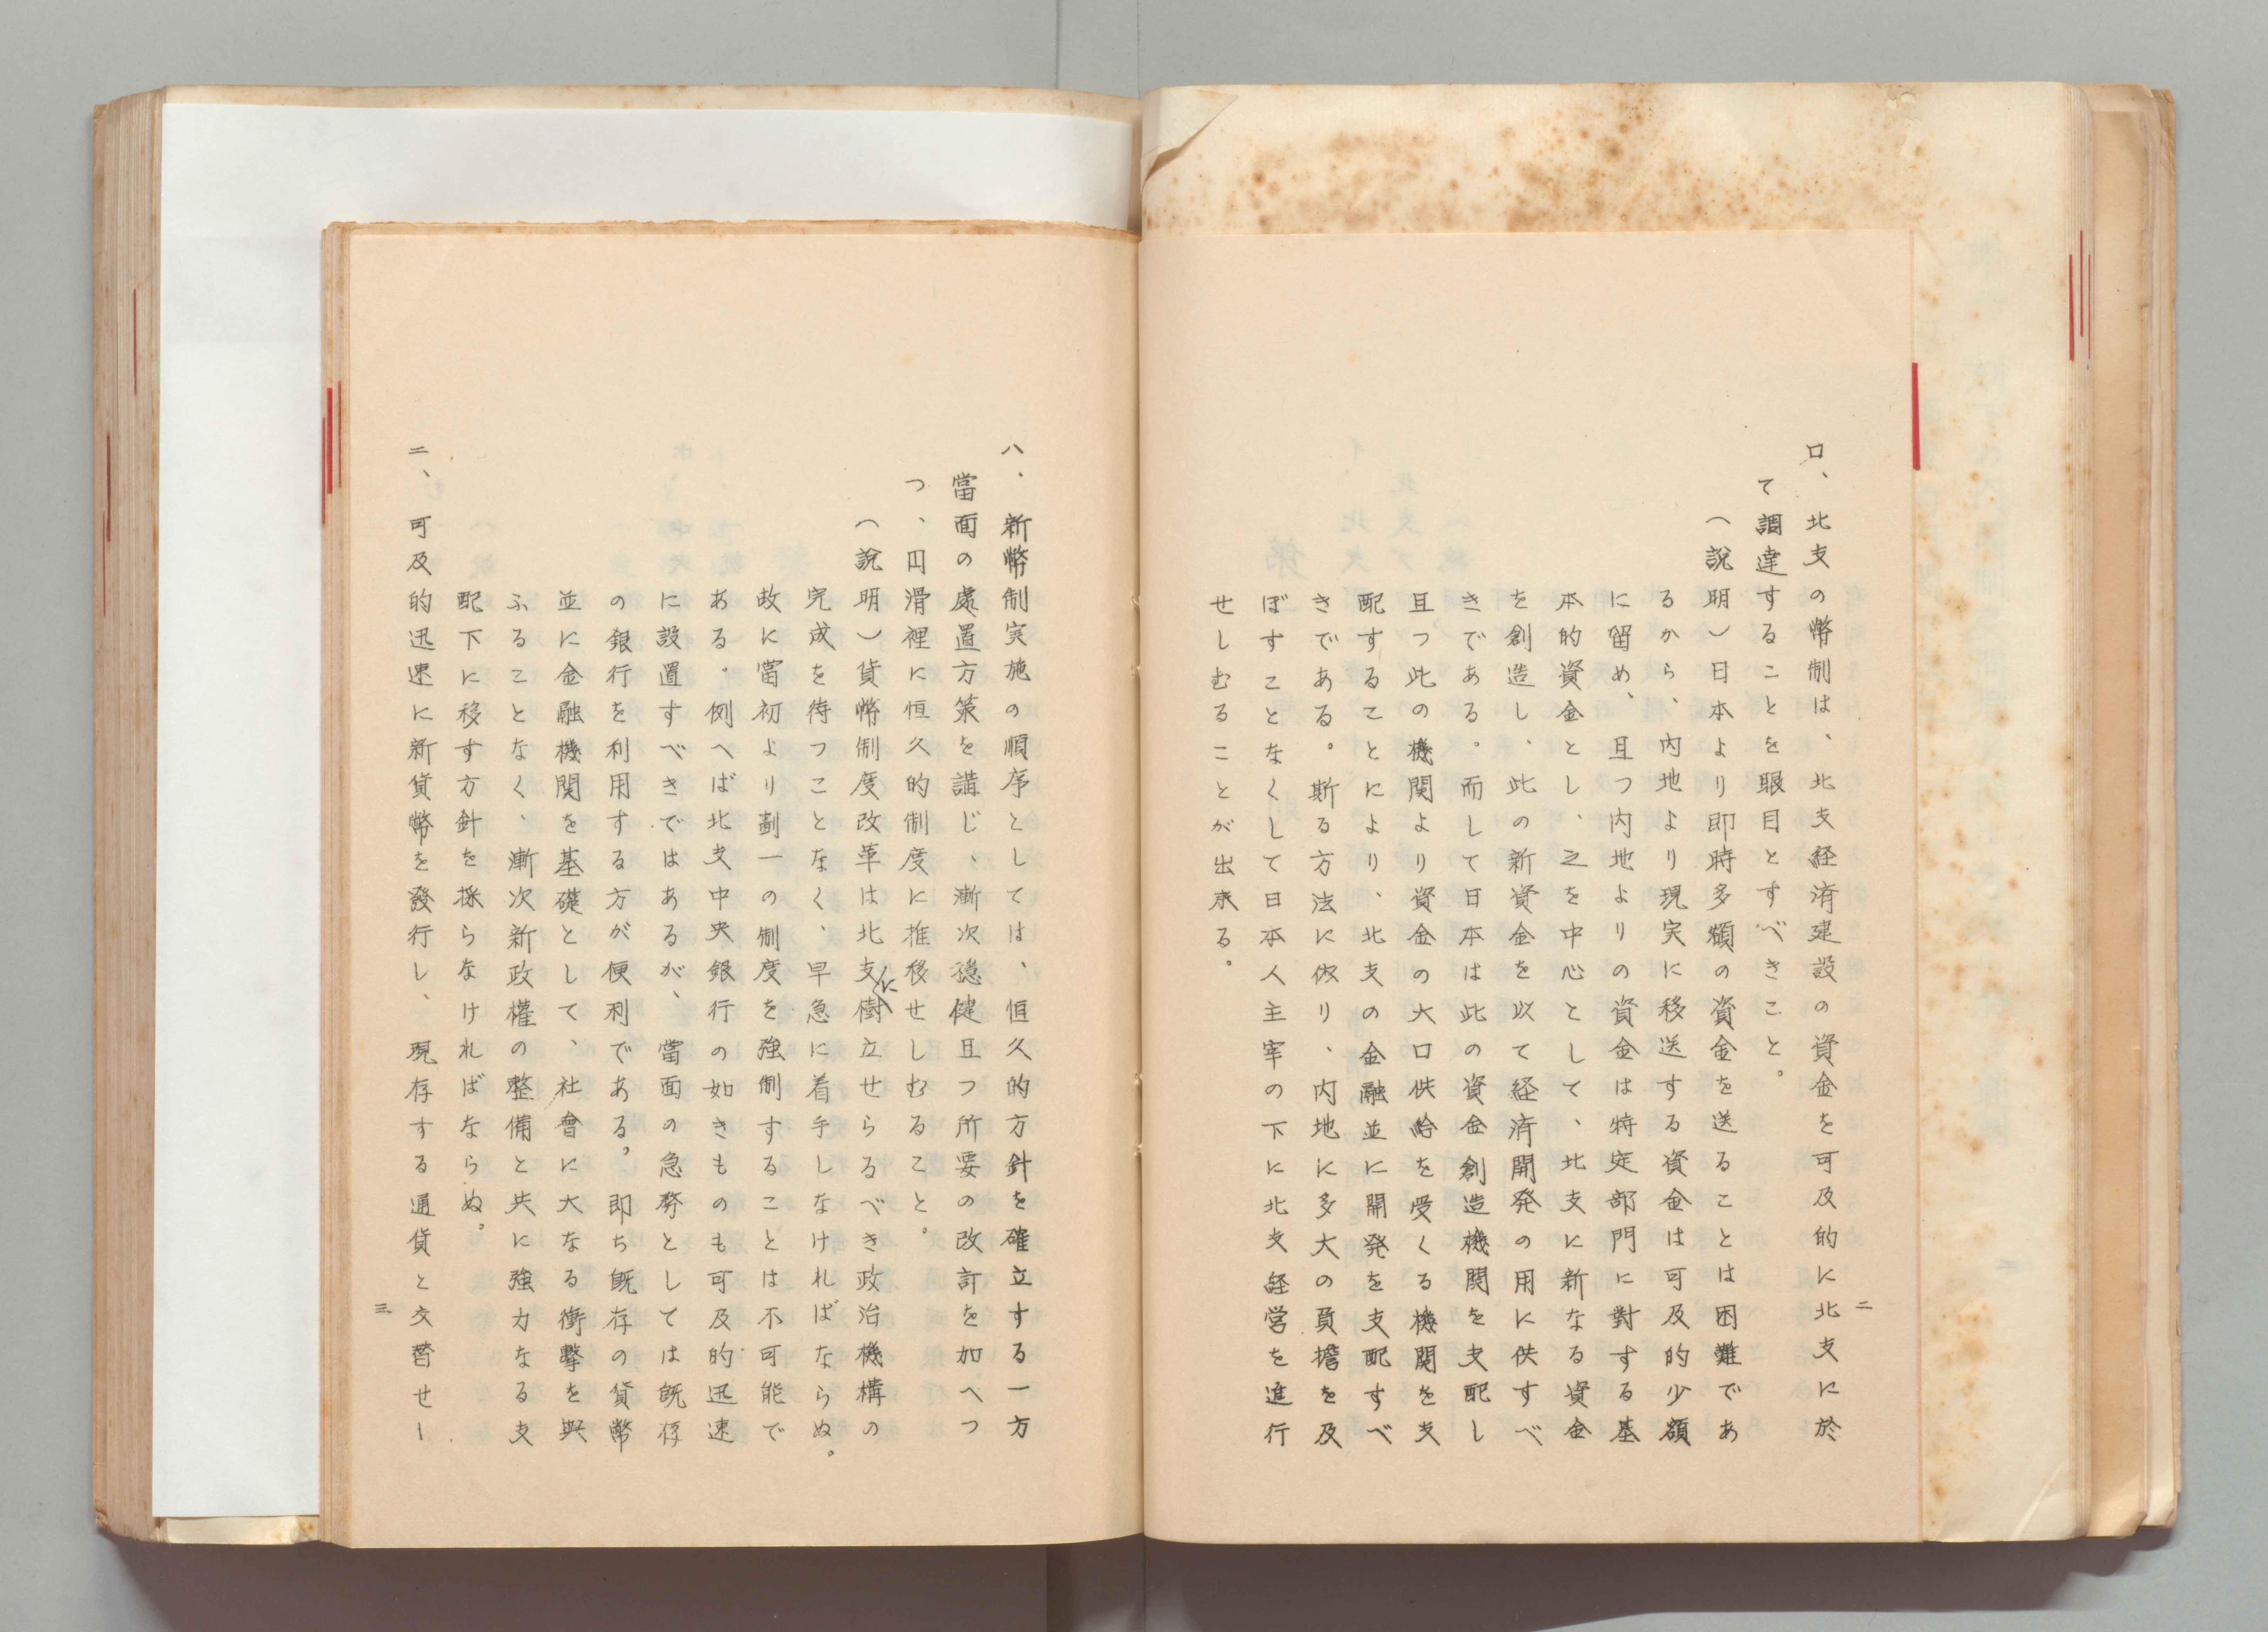 二
ロ、北支の幣制は、北支経済建設の資金を可及的に北支に於
て調達することを眼目とすべきこと。
（説明）日本より即時多額の資金を送ることは困難であ
るから、内地より現実に移送する資金は可及的少額
に留め、且つ内地よりの資金は特定部門に対する基
本的資金とし、之を中心として、北支に新なる資金
を創造し、此の新資金を以て経済開発の用に供すべ
きである。而して日本は此の資金創造機関を支配し
且つ此の機関より資金の大口供給を受くる機関を支
配することにより、北支の金融並に開発を支配すべ
きである。斯る方法に依り、内地に多大の負擔を及
ぼすことなくして日本人主宰の下に北支経営を進行
せしむることが出来る。
ハ、新幣制実施の順序としては、恒久的方針を確立する一方
當面の處置方策を講じ、漸次穏健且つ所要の改訂を加へつ
つ、円滑裡に恒久的制度に推移せしむること。
（説明）貨幣制度改革は北支に樹立せらるべき政治機構の
完成を待つことなく、早急に着手しなければならぬ。
故に當初より劃一の制度を強制することは不可能で
ある。例へば北支中央銀行の如きものも可及的迅速
に設置すべきではあるが、當面の急務としては既存
の銀行を利用する方が便利である。即ち既存の貨幣
並に金融機関を基礎として、社會に大なる衝撃を與
ふることなく、漸次新政權の整備と共に強力なる支
配下に移す方針を採らなければならぬ。
ニ、可及的迅速に新貨幣を發行し、現存する通貨と交替せし
三